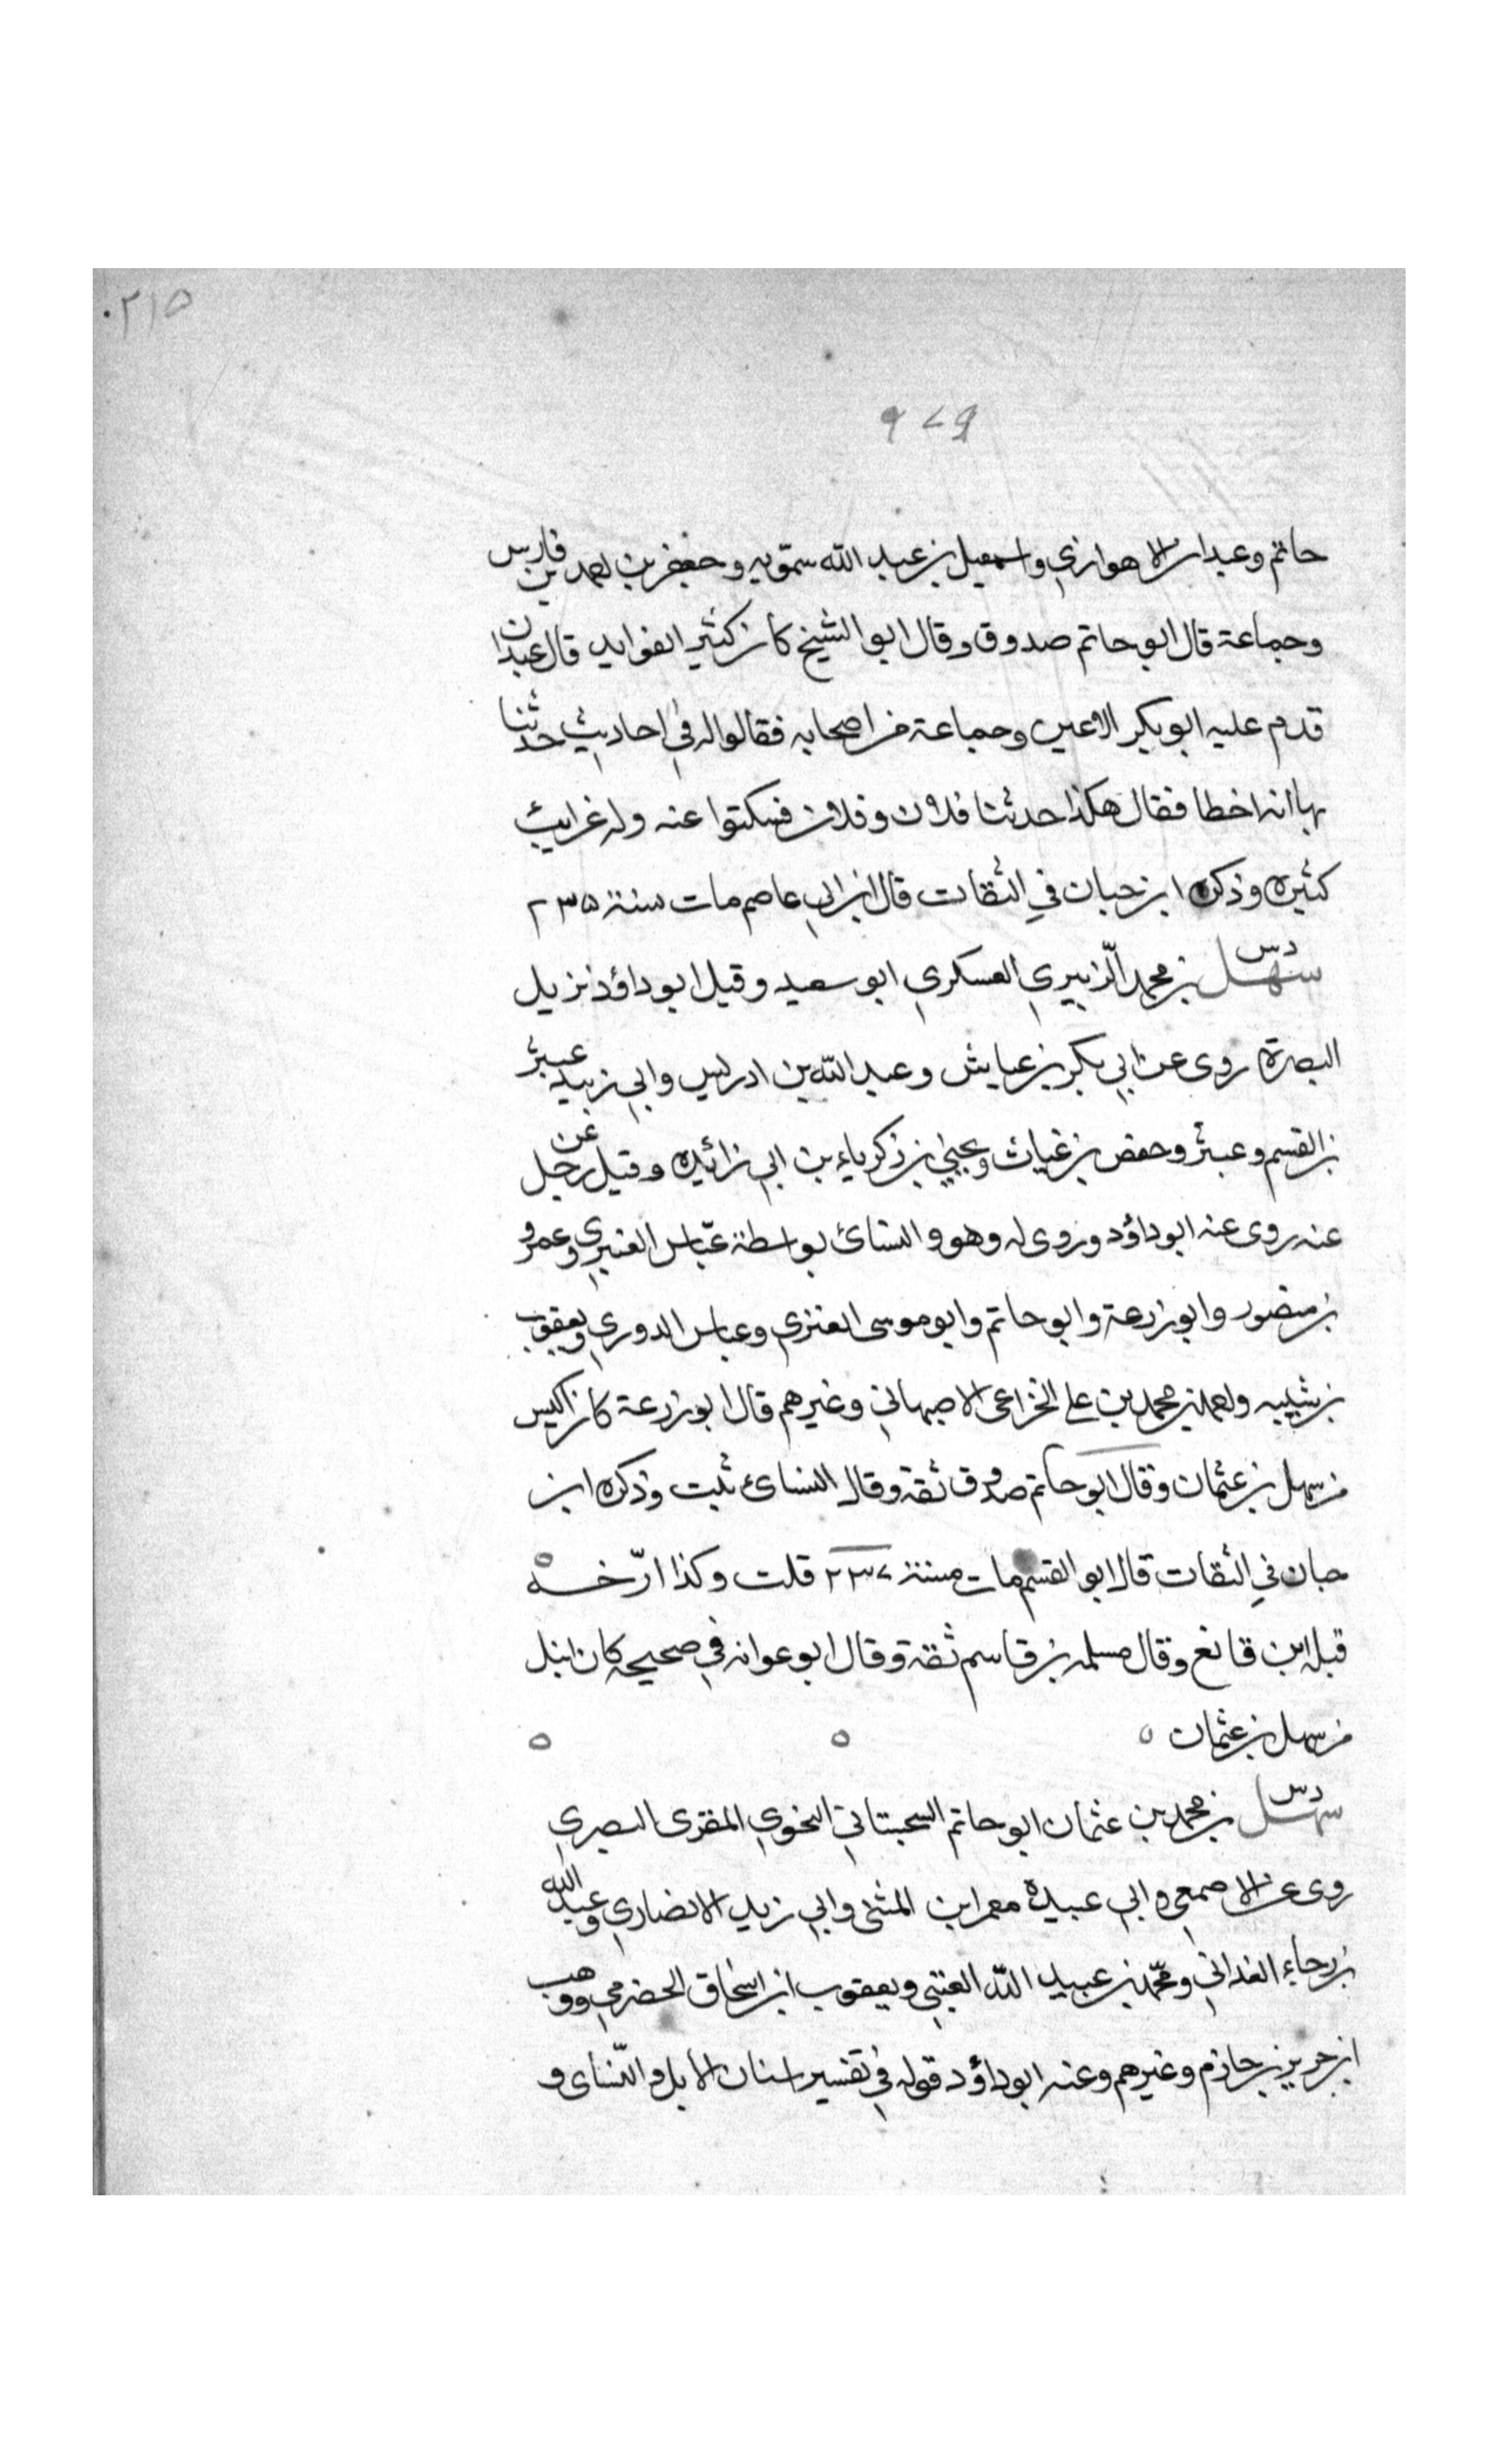 ٢١٥
٩٧٩
حاتم وعبدان الاهوازي واسمعيل بن عبد الله سمّويه وجعفر بن احمد بن فارس
وجماعة قال ابو حاتم صدوق وقال ابو الشيخ كان كثير الفوايد قال عبدان
قدم عليه ابو بكر الاعين وجماعة من اصحابه فقالوا له في احاديث حدثنا
بها انه اخطا فقال هكذا حدثنا فلان وفلان فسكتوا عنه وله غرايب
كثيره وذكره ابن حبان في الثقات قال ابن ابي عاصم مات سنة ٢٣٥
دس
سهل بن محمد الزبيري العسكري ابو سعيد وقيل ابو داؤد نزيل
البصرة روى عن ابي بكر بن عياش وعبد الله بن ادريس وابي زبيد عبثر
بن القسم وعبثر وحفص بن غياث ويحيى بن زكرياء بن ابي زائيده وقيل عن رجل
عنه روى عنه ابو داؤد وروى له وهو والنسائ بواسطة عبّاس العنبري وعمرو
بن منصور وابو زرعة وابو حاتم وابو موسى العنزي وعباس الدوري ويعقوب
بن شيبه واحمد بن محمد بن علي الخزاعى الاصبهاني وغيرهم قال ابو زرعة كان اكيس
من سهل بن عثمان وقال ابو حاتم صدوق ثقة وقال النسائ ثبت وذكره ابن
حبان في الثقات قال ابو القسم مات سنة ٢٣٧ قلت وكذا ارّخه
قبله ابن قانع وقال مسلمه بن قاسم ثقة وقال ابو عوانه في صحيحه كان انبل
من سهل بن عثمان
دس
سهل بن محمد بن عثمان ابو حاتم السجستاني النحوي المقرى البصري
روى عن الاصمعي وابي عبيدة معمر ابن المثنى وابي زيد الانصاري وعبد الله
بن رجاء الغداني ومحمد بن عبيد الله العتبي ويعقوب ابن اسحاق الحضرمي ووهب
ابن جرير بن حازم وغيرهم وعنه ابو داؤد قوله في تفسير اسنان الابل والنساى و